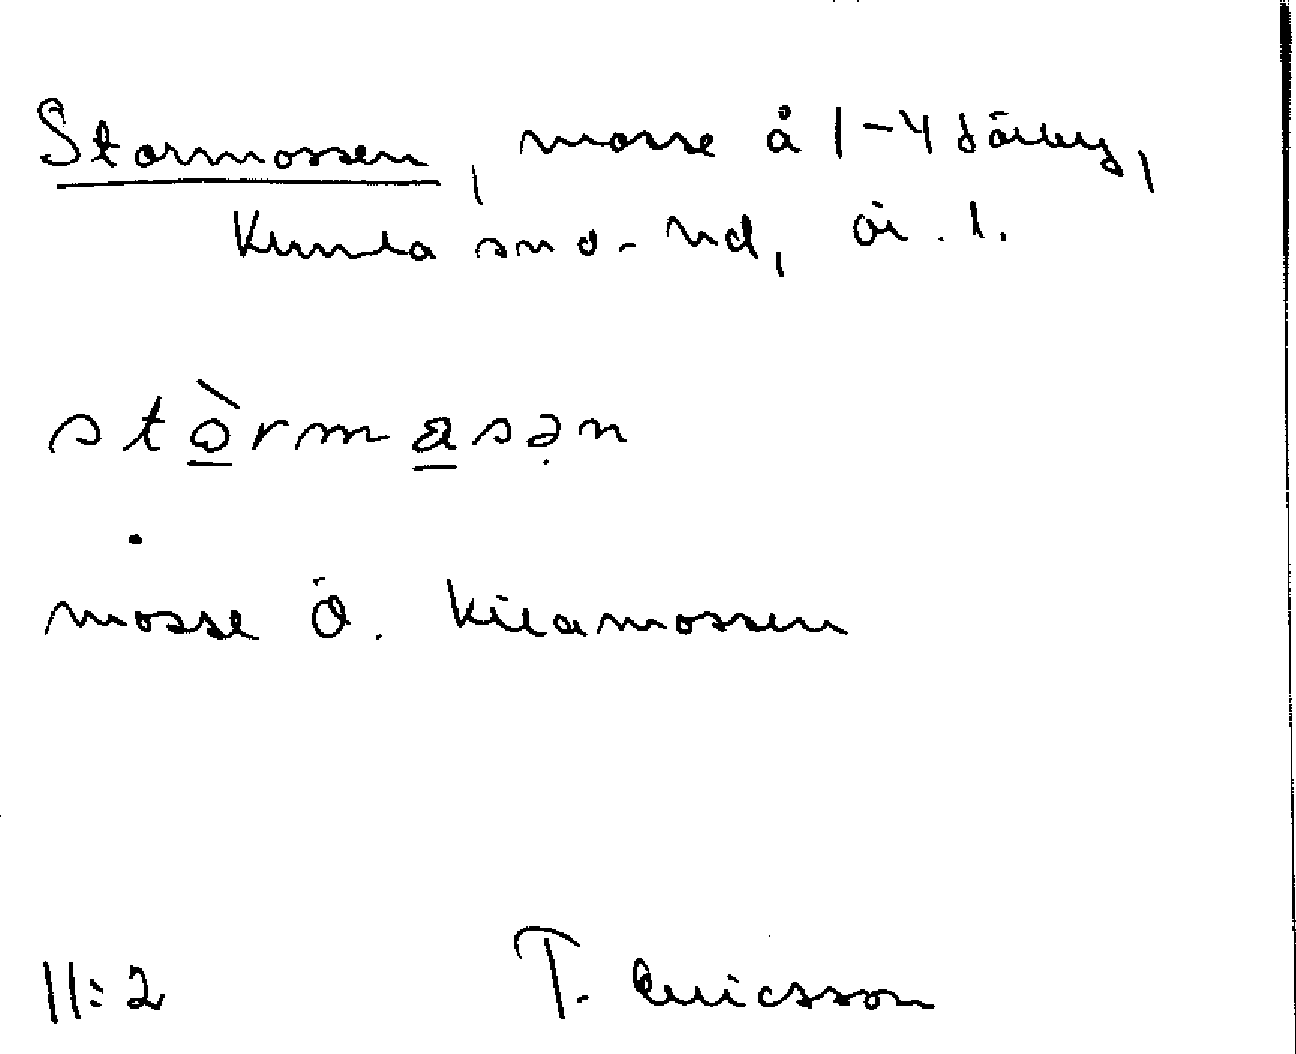 Stormossen, mosse å 1-4 Sörby,
Kumla sn o. hd, Ör. l.
stòrmasən
mosse Ö. Kilamossen
11:2 T. Ericsson